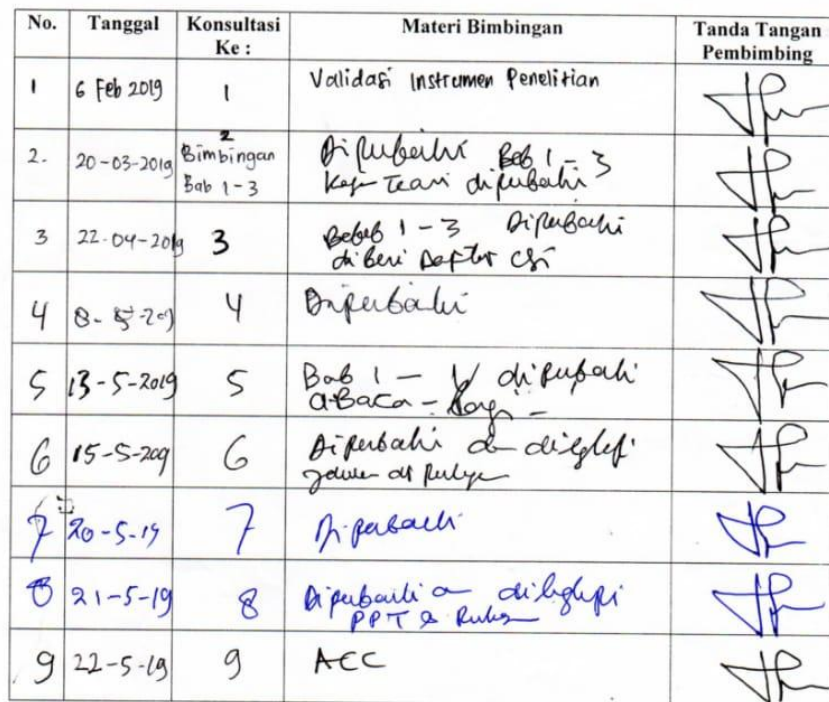 No. Tanggal Konsultasi Ke : Materi Bimbingan Tanda Tangan Pembimbing
1 6 Feb 2019 1 Validasi Instrumen Penelitian
2. 20-03-2019 2 Bimbingan Bab 1-3 Diperbaiki Bab 1-3
diperbaiki
3 22-04-2019 3 1-3 Diperbaiki
diberi Daftar
4 8-5-209 4 Diperbaiki
5 13-5-2019 5 Bab 1 - V diperbaiki
6 15-5-209 6 Diperbaiki
7 20-5-19 7 Diperbaiki
8 21-5-19 8 Diperbaiki
PPT &
9 22-5-19 9 ACC